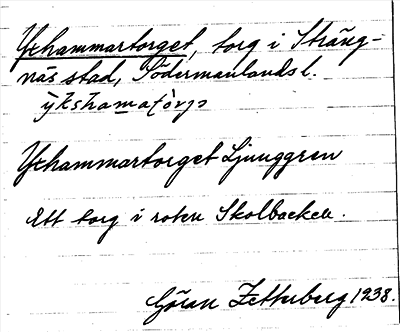 Yxhammartorget, torg i Sträng-
näs stad, Södermanlands l.
Yxhammartorget Ljunggren
Ett torg i roten Skolbacken.
Göran Zetterberg 1938.